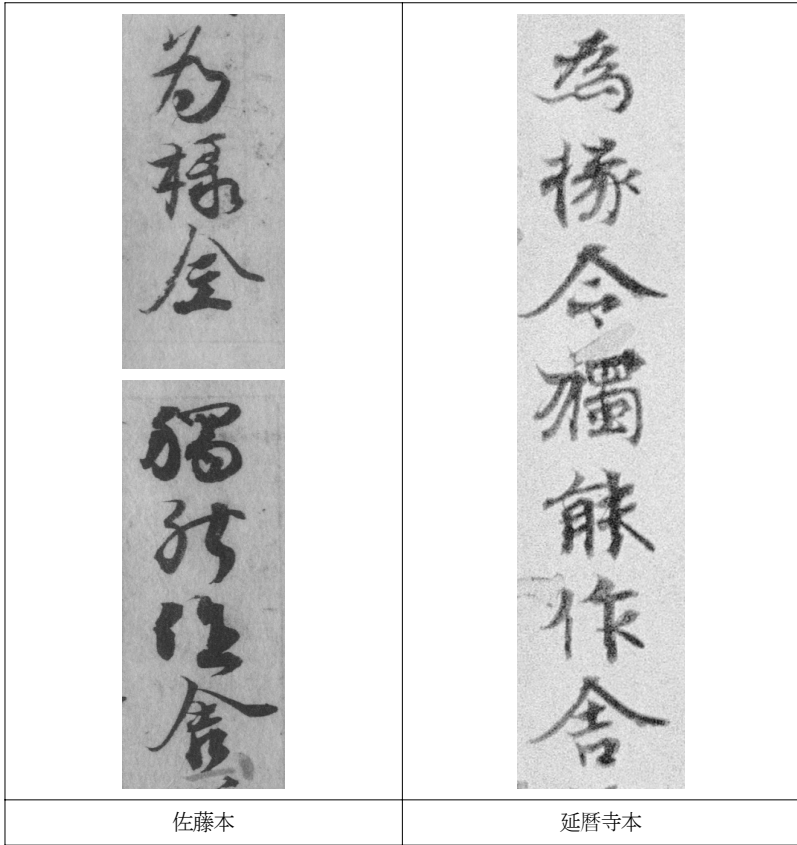 為椽全
獨能作舍
為椽令獨能作舍
佐藤本
延暦寺本